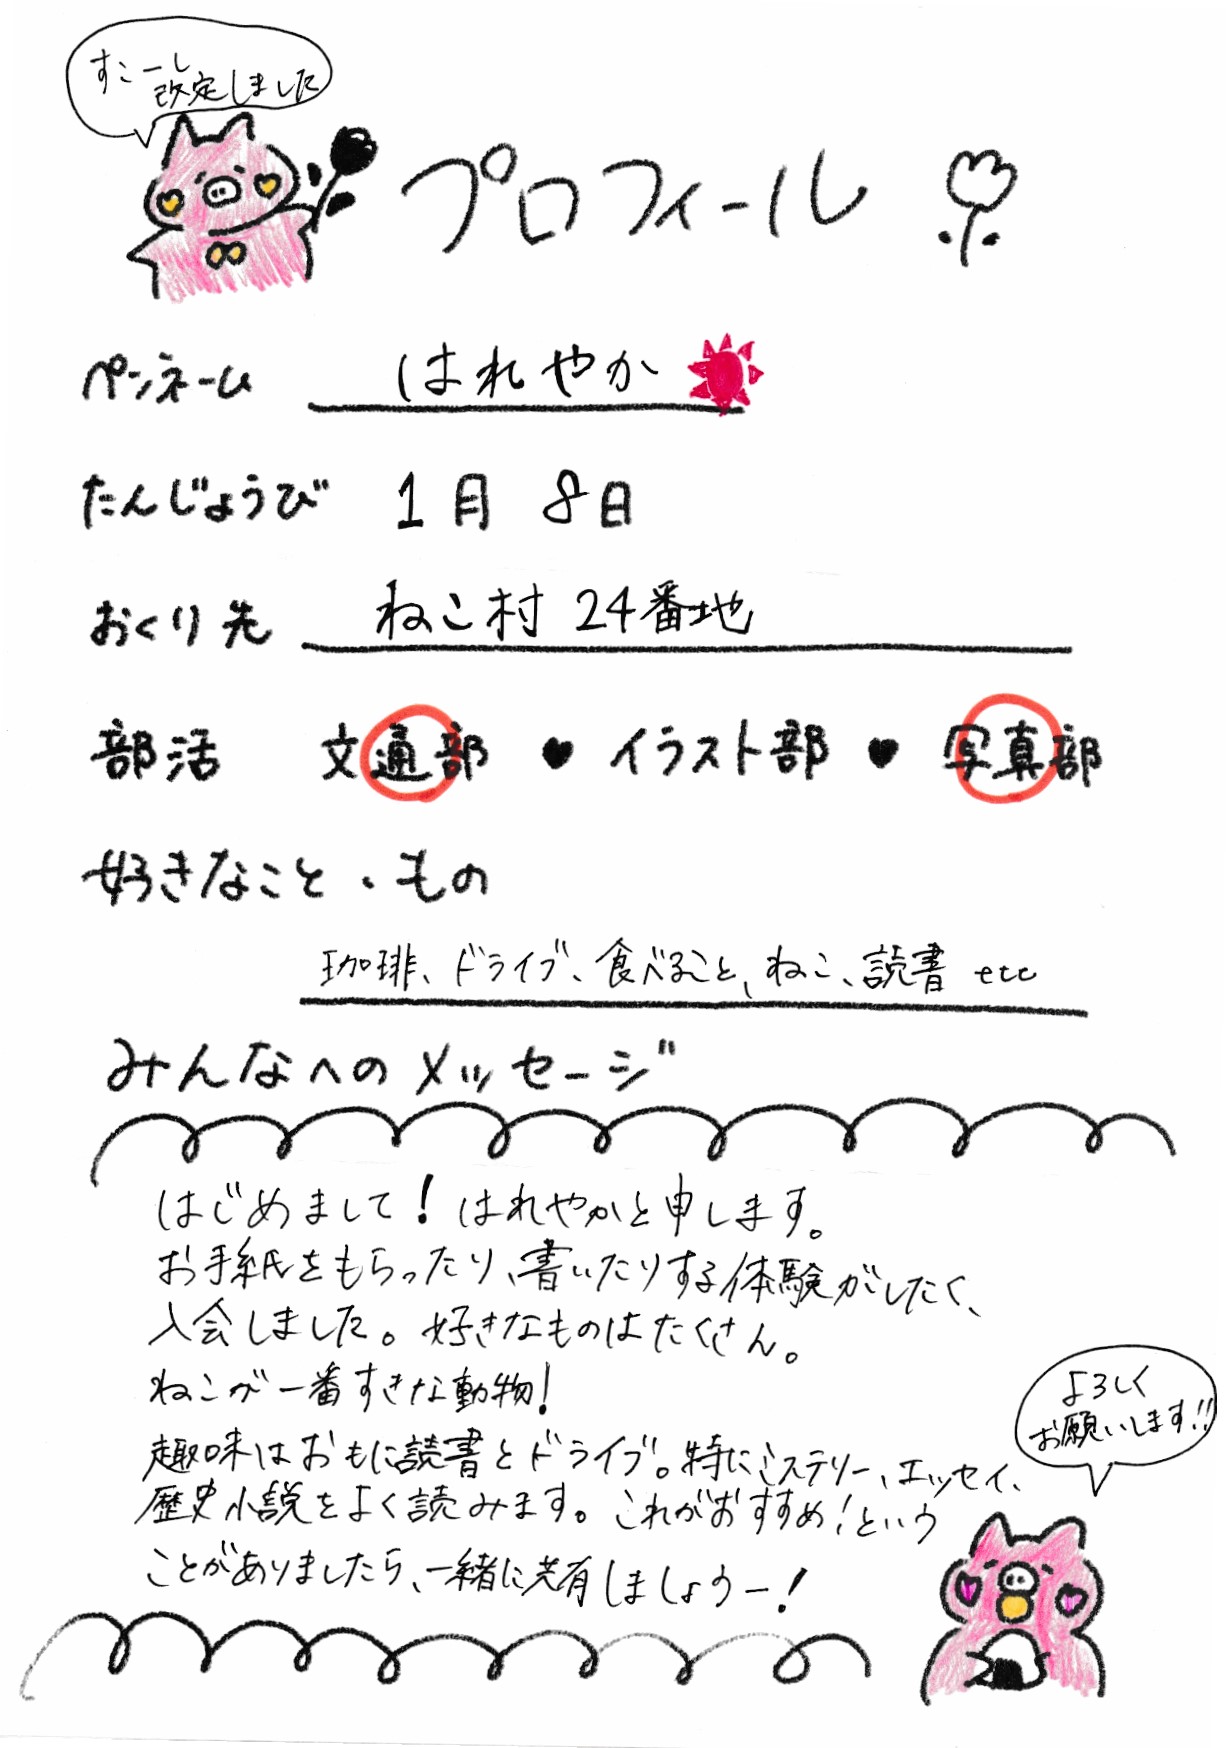 すこーし
改定しました
プロフィール
ペンネーム はれやか
たんじょうび 1月 8日
おくり先 ねこ村 24番地
部活 文通部 ♥ イラスト部 ♥ 写真部
好きなこと・もの
珈琲、ドライブ、食べること、ねこ、読書 etc
みんなへのメッセージ
はじめまして!はれやかと申します。
お手紙をもらったり、書いたりする体験がしたく、
入会しました。好きなものはたくさん。
ねこが一番すきな動物!
趣味はおもに読書とドライブ。特にミステリー、エッセイ、
歴史小説をよく読みます。これがおすすめ!という
ことがありましたら、一緒に共有しましょうー!
よろしく
お願いします!!